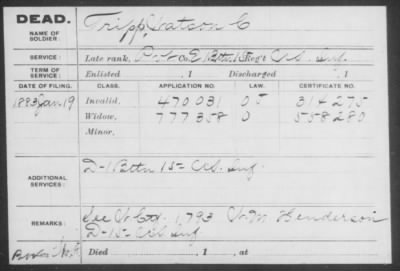 DEAD.
NAME OF SOLDIER: Tripp, Watson C
SERVICE: Late rank, Pvt Co E 1 Bttn 15 Reg't U.S. Inf.
TERM OF SERVICE: Enlisted , 1 Discharged , 1
DATE OF FILING. CLASS. APPLICATION NO. LAW. CERTIFICATE NO.
1883 Jan 19 Invalid, 470031 314275
Widow, 777358 558280
Minor,
ADDITIONAL SERVICES: D-1 Bttn 15 US. Inf.
REMARKS: See 1,793 Wm Henderson
D-15- US Inf
Died , 1 , at